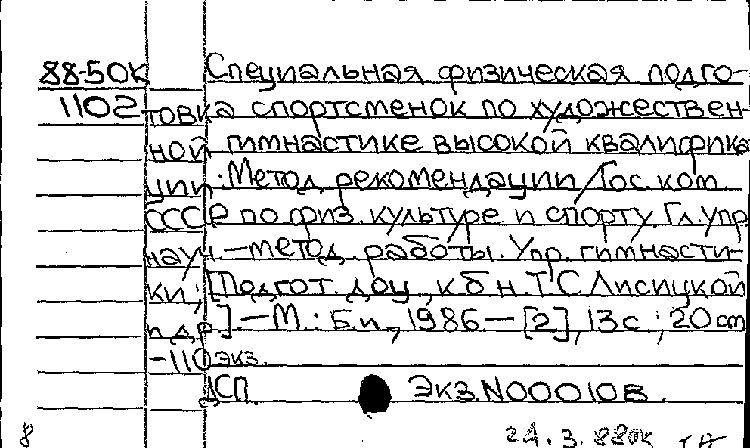 88-50к Специальная физическая подго-
1102 товка спортсменок по художествен
ной гимнастике высокой квалифика
ции: Метод. рекомендации / Гос. ком.
СССР по физ. культуре и спорту. Гл. упр.
науч.-метод. работы. Упр. гимнасти-
ки; [Подгот. доц., к б н. Т.С Лисицкой
и др.].-М.: Б.и., 1986 - [2], 13 с ; 20 cm
-110 экз.
СП. Экз. N00010В.
8 24.3.88